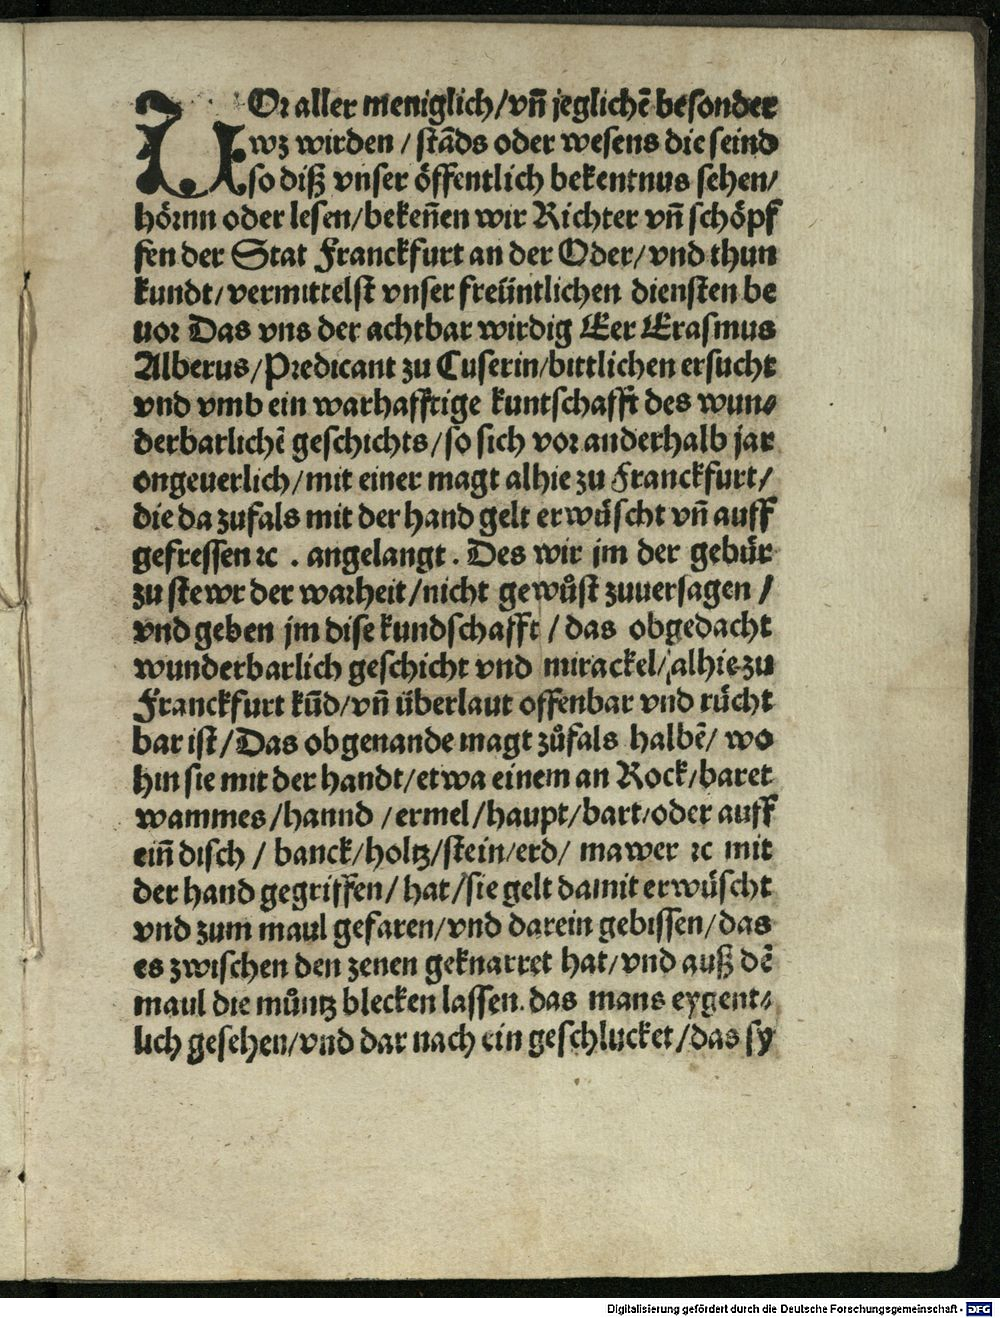 VOr aller meniglich/vñ jeglichẽ besonder
wz wirden / stãds oder wesens die seind
so diß vnser öffentlich bekentnus sehen/
hörnn oder lesen/bekeñen wir Richter vñ schöpf
fen der Stat Franckfurt an der Oder/vnd thun
kundt/vermittelst vnser freüntlichen diensten be
uor Das vns der achtbar wirdig Eer Erasmus
Alberus/Predicant zu Cuserin/bittlichen ersucht
vnd vmb ein warhafftige kuntschafft des wun⸗
derbarlichẽ geschichts/so sich vor anderhalb jar
ongeuerlich/mit einer magt alhie zu Franckfurt/
die da zufals mit der hand gelt erwüscht vñ auff
gefressen ꝛc . angelangt . Des wir jm der gebür
zu stewr der warheit/nicht gewůst zuuersagen /
vnd geben jm dise kundschafft / das obgedacht
wunderbarlich geschicht vnd mirackel/alhie zu
Franckfurt kũd/vñ überlaut offenbar vnd rücht
bar ist/Das obgenande magt zůfals halbẽ/ wo
hin sie mit der handt/etwa einem an Rock/baret
wammes/hannd /ermel/haupt/bart/oder auff
eiñ disch / banck/holtz/stein/erd/ mawer ꝛc mit
der hand gegriffen/hat/sie gelt damit erwüscht
vnd zum maul gefaren/vnd darein gebissen/das
es zwischen den zenen geknarret hat/vnd auß dẽ
maul die můntz blecken lassen. das mans eygent⸗
lich gesehen/vnd dar nach ein geschlucket/das sy
Digitalisierung gefördert durch die Deutsche Forschungsgemeinschaft - DFG